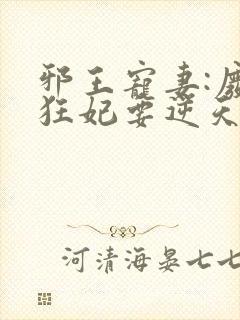 邪王寵妻:廢
狂妃要逆天
河清海晏七七